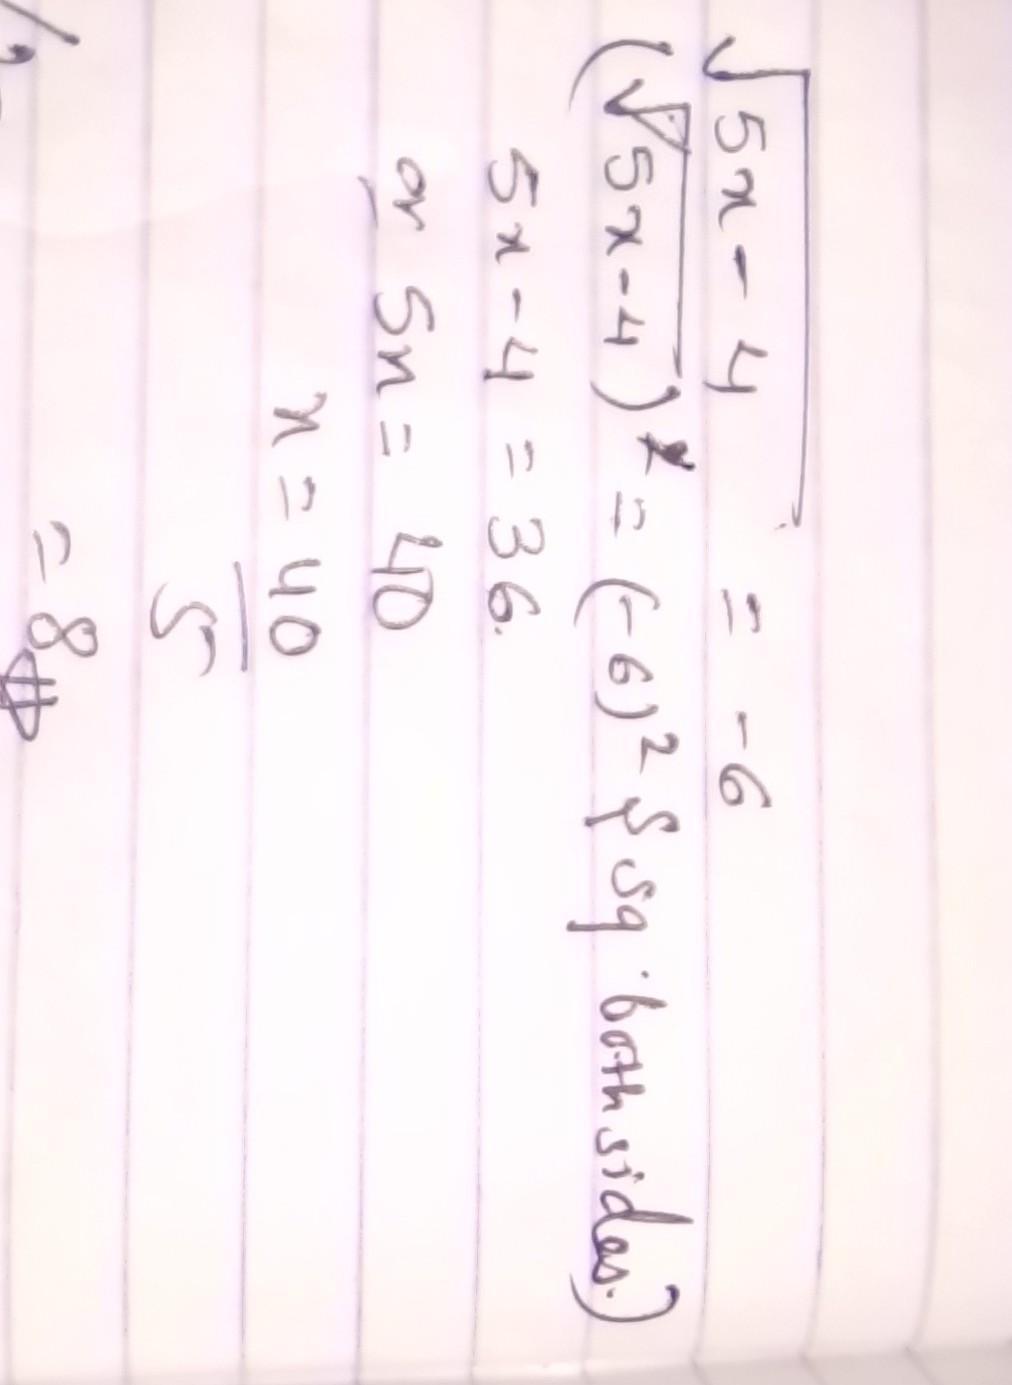 √5x-4 = -6
(√5x-4)² = (-6)² {sq. both sides.)
5x-4 = 36.
or 5x = 40
x = 40
5
= 8